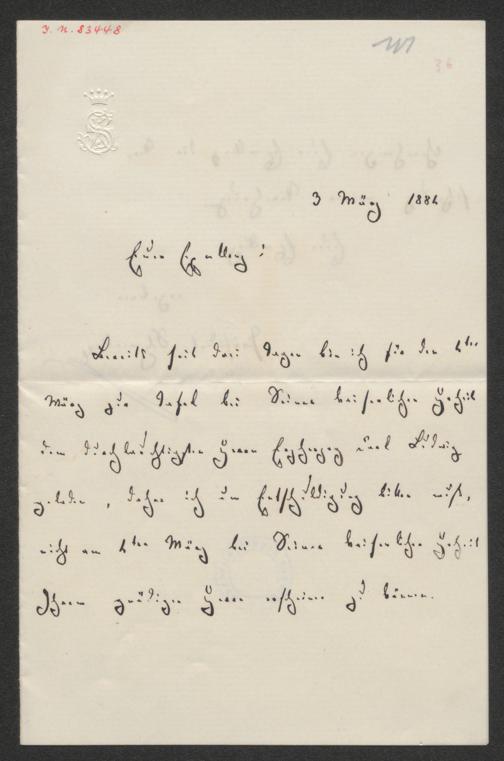 J. N. 83448
36
3 März 1884
Eure Exzellenz!
Bereits seit drei Tagen bin ich für den 4ten
März zur Tafel bei Seiner kaiserlichen Hoheit
dem durchlauchtigsten Herrn Erzherzog Carl Ludwig
geladen, daher ich um Entschuldigung bitten muß,
nicht am 4ten März bei Seiner kaiserlichen Hoheit
Ihrem gnädigen Herrn erscheinen zu können.